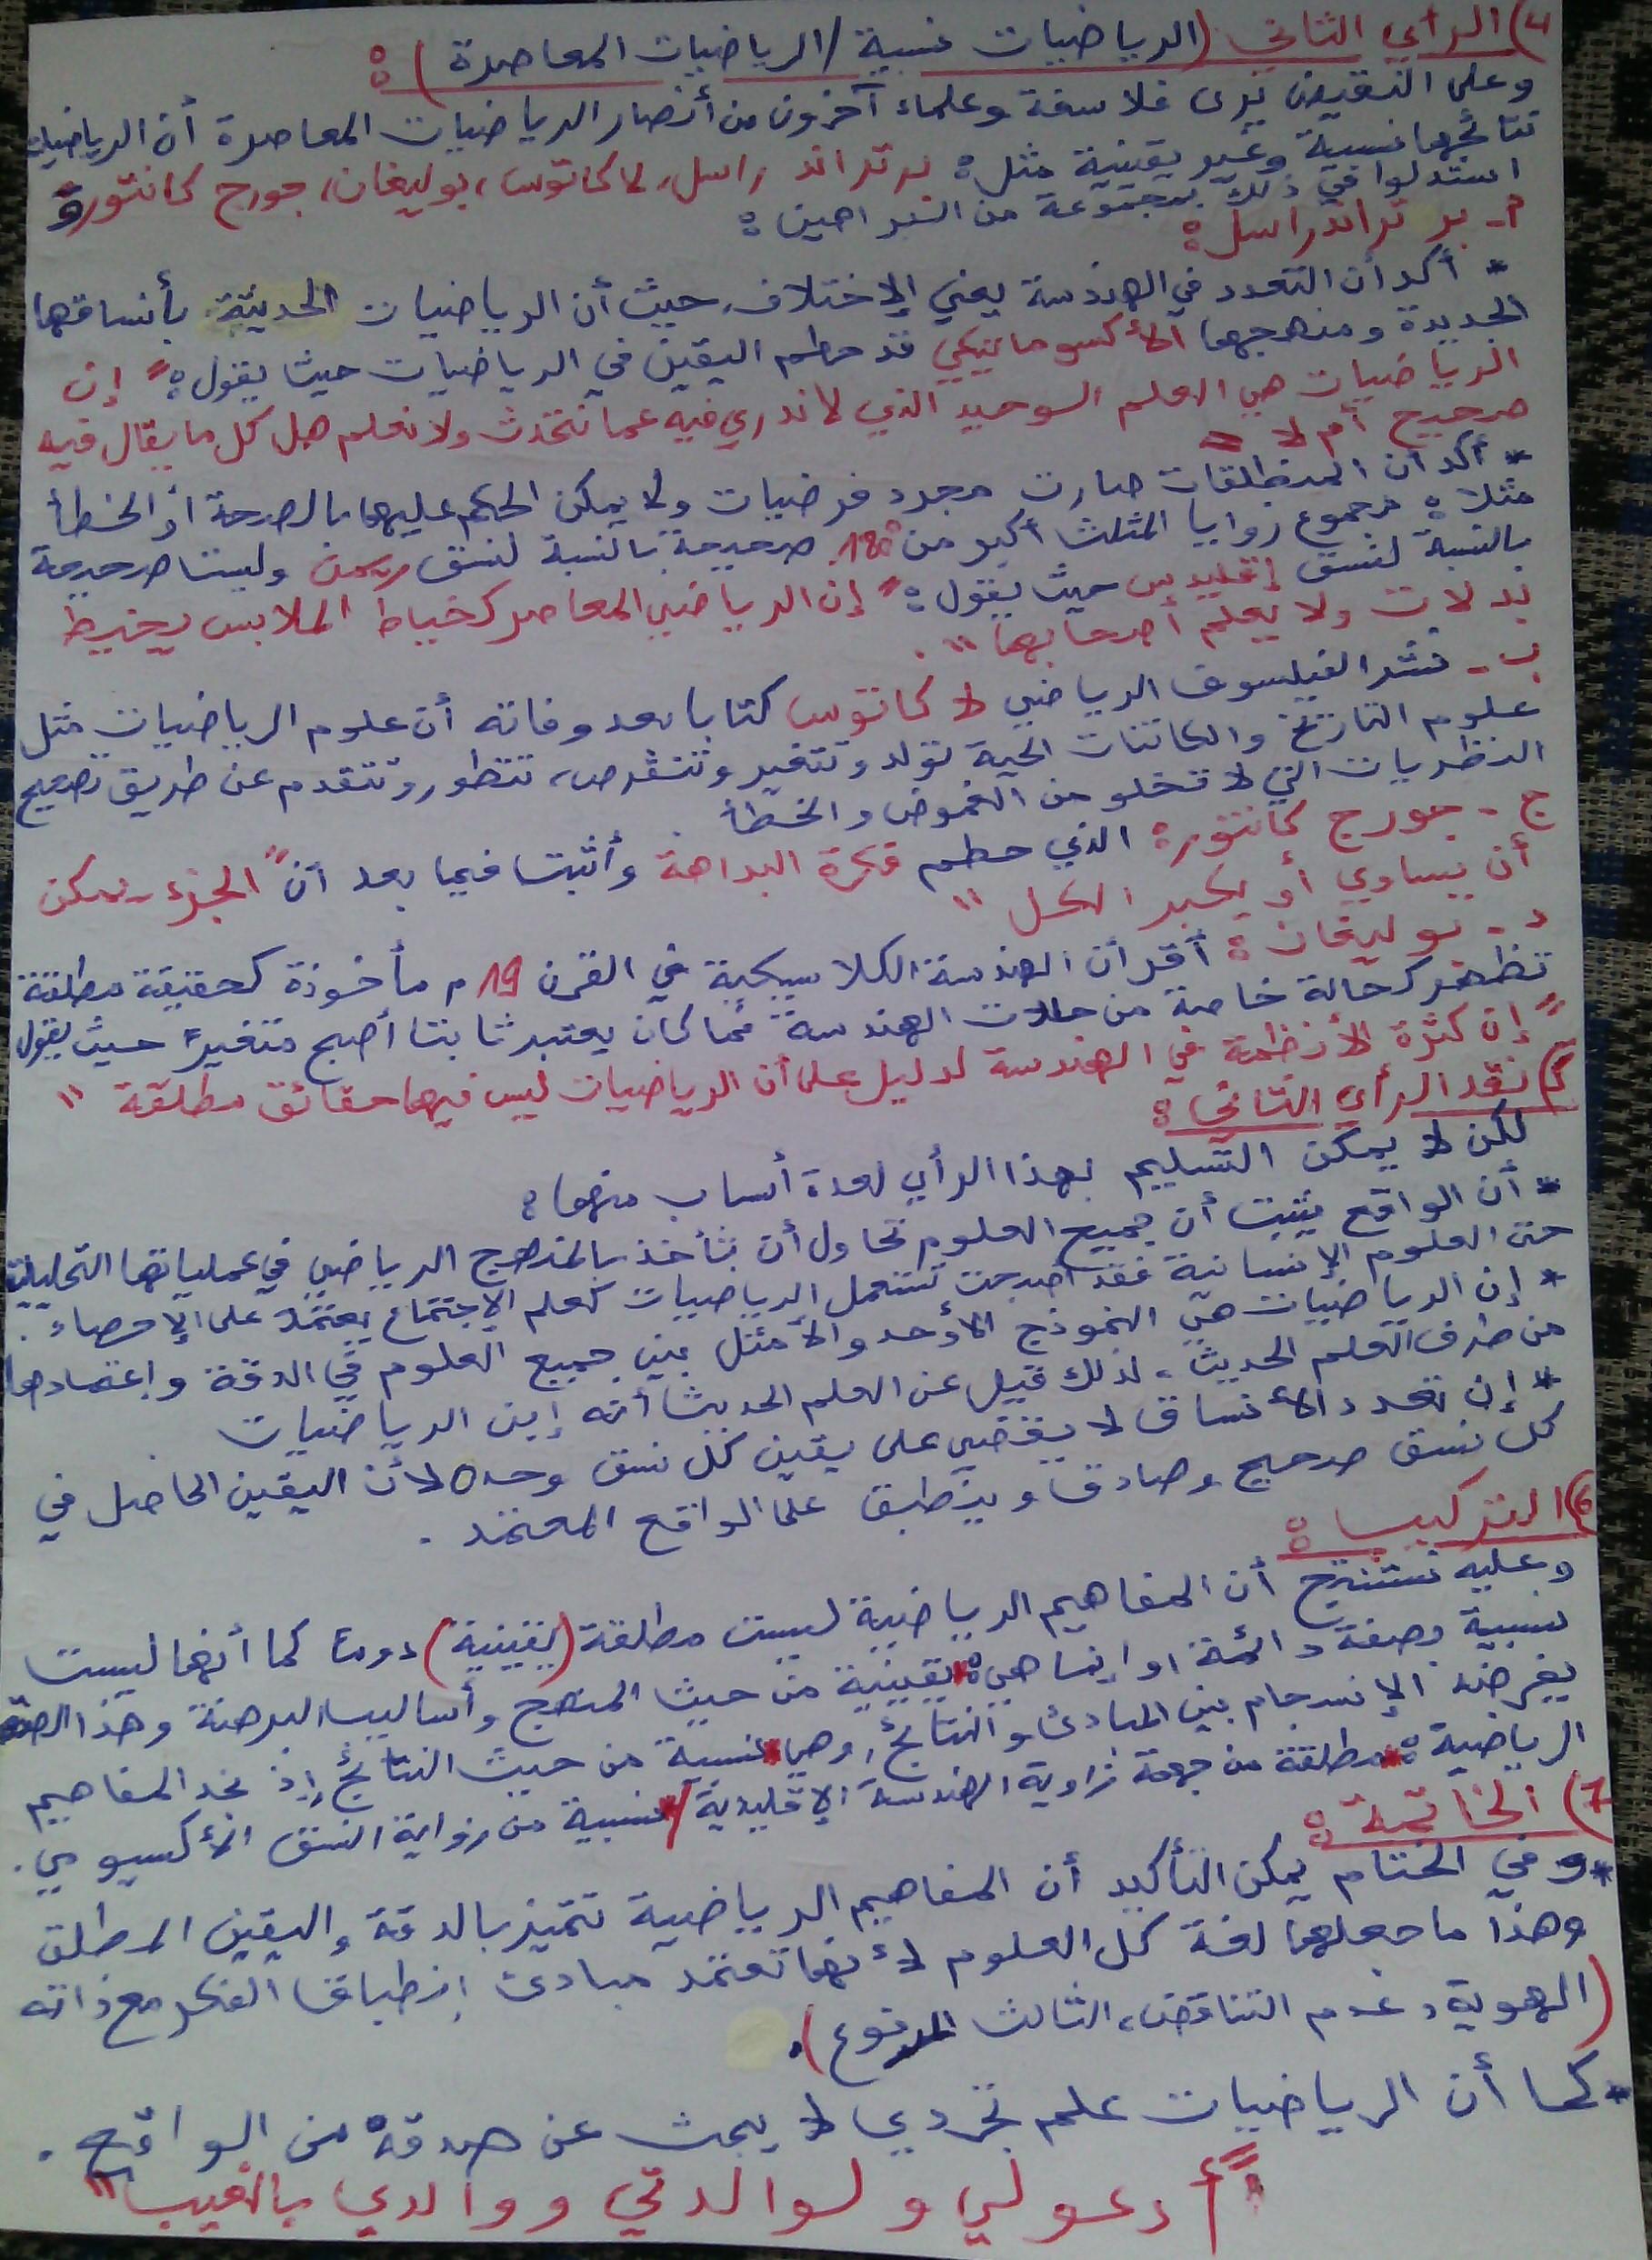 4) الرأي الثاني (الرياضيات نسبية / الرياضيات المعاصرة):
وعلى النقيض يرى فلاسفة وعلماء آخرون من أنصار الرياضيات المعاصرة أن الرياضيات
نتائجها نسبية وغير يقينية مثل: برتراند راسل، لاكاتوس، بوليغان، جورج كانتور و
استدلوا في ذلك بمجموعة من البراهين:
أ- برتراند راسل:
* أكد أن التعدد في الهندسة يعني الإختلاف، حيث أن الرياضيات الحديثة بأنساقها
الجديدة ومنهجها الأكسوماتيكي قد حطم اليقين في الرياضيات حيث يقول: "إن
الرياضيات هي العلم الوحيد الذي لا ندري فيه عما نتحدث ولا نعلم هل كل ما يقال فيه
صحيح أم لا"
* أكد أن المنطلقات صارت مجرد فرضيات ولا يمكن الحكم عليها بالصحة أو الخطأ
مثلا: مجموع زوايا المثلث أكبر من 180° صحيحة بالنسبة لنسق ريمن وليست صحيحة
بالنسبة لنسق إقليدس حيث يقول: "إن الرياضي المعاصر كخياط الملابس يخيط
بدلات ولا يعلم أصحابها".
ب- نشر الفيلسوف الرياضي لاكاتوس كتابا بعد وفاته أن علوم الرياضيات مثل
علوم التاريخ والكائنات الحية تولد وتتغير وتنقرض، تتطور وتتقدم عن طريق تصحيح
النظريات التي لا تخلو من الغموض والخطأ.
ج- جورج كانتور: الذي حطم فكرة البداهة وأثبت فيما بعد أن "الجزء يمكن
أن يساوي أو يكبر الكل"
د- بوليغان: أقر أن الهندسة الكلاسيكية في القرن 19م مأخوذة كحقيقة مطلقة
تظهر كحالة خاصة من حالات الهندسة فما كان يعتبر ثابتا أصبح متغيرا حيث يقول
"إن كثرة الأنظمة في الهندسة لدليل على أن الرياضيات ليس فيها حقائق مطلقة"
5) نقد الرأي الثاني:
لكن لا يمكن التسليم بهذا الرأي لعدة أسباب منها:
* أن الواقع يثبت أن جميع العلوم تحاول أن تأخذ بالمنهج الرياضي في عملياتها التحليلية
حتى العلوم الإنسانية فقد أصبحت تستعمل الرياضيات كعلم الإجتماع يعتمد على الإحصاء.
* إن الرياضيات هي النموذج الأوحد والأمثل بين جميع العلوم في الدقة واعتمادها
من طرف العلم الحديث، لذلك قيل عن العلم الحديث أنه إبن الرياضيات
* إن تعدد الأنساق لا يقضي على يقين كل نسق وحده لأن اليقين الحاصل في
كل نسق صحيح وصادق وينطبق على الواقع المعتمد.
6) التركيب:
وعليه نستنتج أن المفاهيم الرياضية ليست مطلقة (يقينية) دوما كما أنها ليست
نسبية بصفة دائمة وإنما هي: يقينية من حيث المنهج وأساليب البرهنة وهذا
يفرضه الإنسجام بين المبادئ والنتائج، وهي نسبية من حيث النتائج إذ نجد المفاهيم
الرياضية: مطلقة من جهة زاوية الهندسة الإقليدية / نسبية من زواية النسق الأكسيومي.
7) الخاتمة:
* وفي الختام يمكن التأكيد أن المفاهيم الرياضية تتميز بالدقة واليقين المطلق
وهذا ما جعلها لغة كل العلوم لأنها تعتمد مبادئ إنطباق الفكر مع ذاته
(الهوية، عدم التناقض، الثالث المرفوع).
* كما أن الرياضيات علم تجردي لا يبحث عن صدقه من الواقع.
"أدعولي ولوالدتي ووالدي بالغيب"